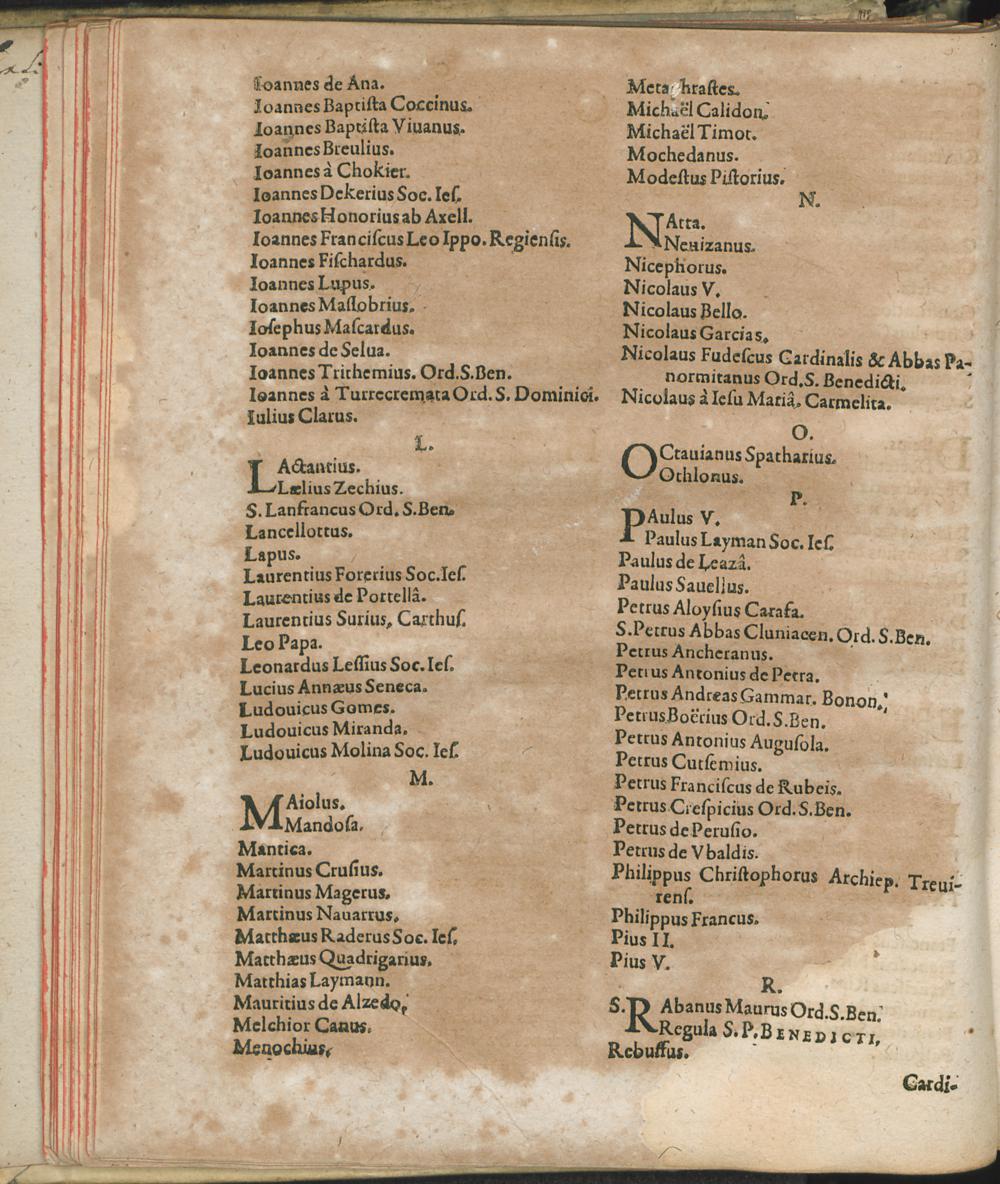 Ioannes de Ana.
Ioannes Baptiſta Coccinus.
Ioannes Baptiſta Viuanus.
Ioannes Breulius.
Ioannes à Chokier.
Ioannes Dekerius Soc. Ieſ.
Ioannes Honorius ab Axell.
Ioannes Franciſcus Leo Ippo. Regienſis.
Ioannes Fiſchardus.
Ioannes Lupus.
Ioannes Maſſobrius.
Ioſephus Maſcardus.
Ioannes de Selua.
Ioannes Trithemius. Ord. S. Ben.
Ioannes à Turrecremata Ord. S. Dominici.
Iulius Clarus.
L.
LActantius.
Lælius Zechius.
S. Lanfrancus Ord. S. Ben.
Lancellottus.
Lapus.
Laurentius Forerius Soc. Ieſ.
Laurentius de Portellâ.
Laurentius Surius, Carthuſ.
Leo Papa.
Leonardus Leſſius Soc. Ieſ.
Lucius Annæus Seneca.
Ludouicus Gomes.
Ludouicus Miranda.
Ludouicus Molina Soc. Ieſ.
M.
MAiolus.
Mandoſa.
Mantica.
Martinus Cruſius.
Martinus Magerus.
Martinus Nauarrus.
Matthæus Raderus Soc. Ieſ.
Matthæus Quadrigarius.
Matthias Laymann.
Mauritius de Alzedo,
Melchior Canus.
Menochius.
Metaphraſtes.
Michaël Calidon.
Michaël Timot.
Mochedanus.
Modeſtus Piſtorius.
N.
NAtta.
Neuizanus.
Nicephorus.
Nicolaus V.
Nicolaus Bello.
Nicolaus Garcias.
Nicolaus Fudeſcus Cardinalis & Abbas Pa-
normitanus Ord. S. Benedicti.
Nicolaus à Ieſu Mariâ, Carmelita.
O.
OCtauianus Spatharius.
Othlonus.
P.
PAulus V.
Paulus Layman Soc. Ieſ.
Paulus de Leazâ.
Paulus Sauellus.
Petrus Aloyſius Carafa.
S. Petrus Abbas Cluniacen. Ord. S. Ben.
Petrus Ancheranus.
Petrus Antonius de Petra.
Petrus Andreas Gammar. Bonon.
Petrus Boërius Ord. S. Ben.
Petrus Antonius Auguſola.
Petrus Cutſemius.
Petrus Franciſcus de Rubeis.
Petrus Creſpicius Ord. S. Ben.
Petrus de Peruſio.
Petrus de Vbaldis.
Philippus Chriſtophorus Archiep. Treui-
renſ.
Philippus Francus.
Pius II.
Pius V.
R.
S. RAbanus Maurus Ord. S. Ben.
Regula S. P. BENEDICTI,
Rebuffus.
Cardi-